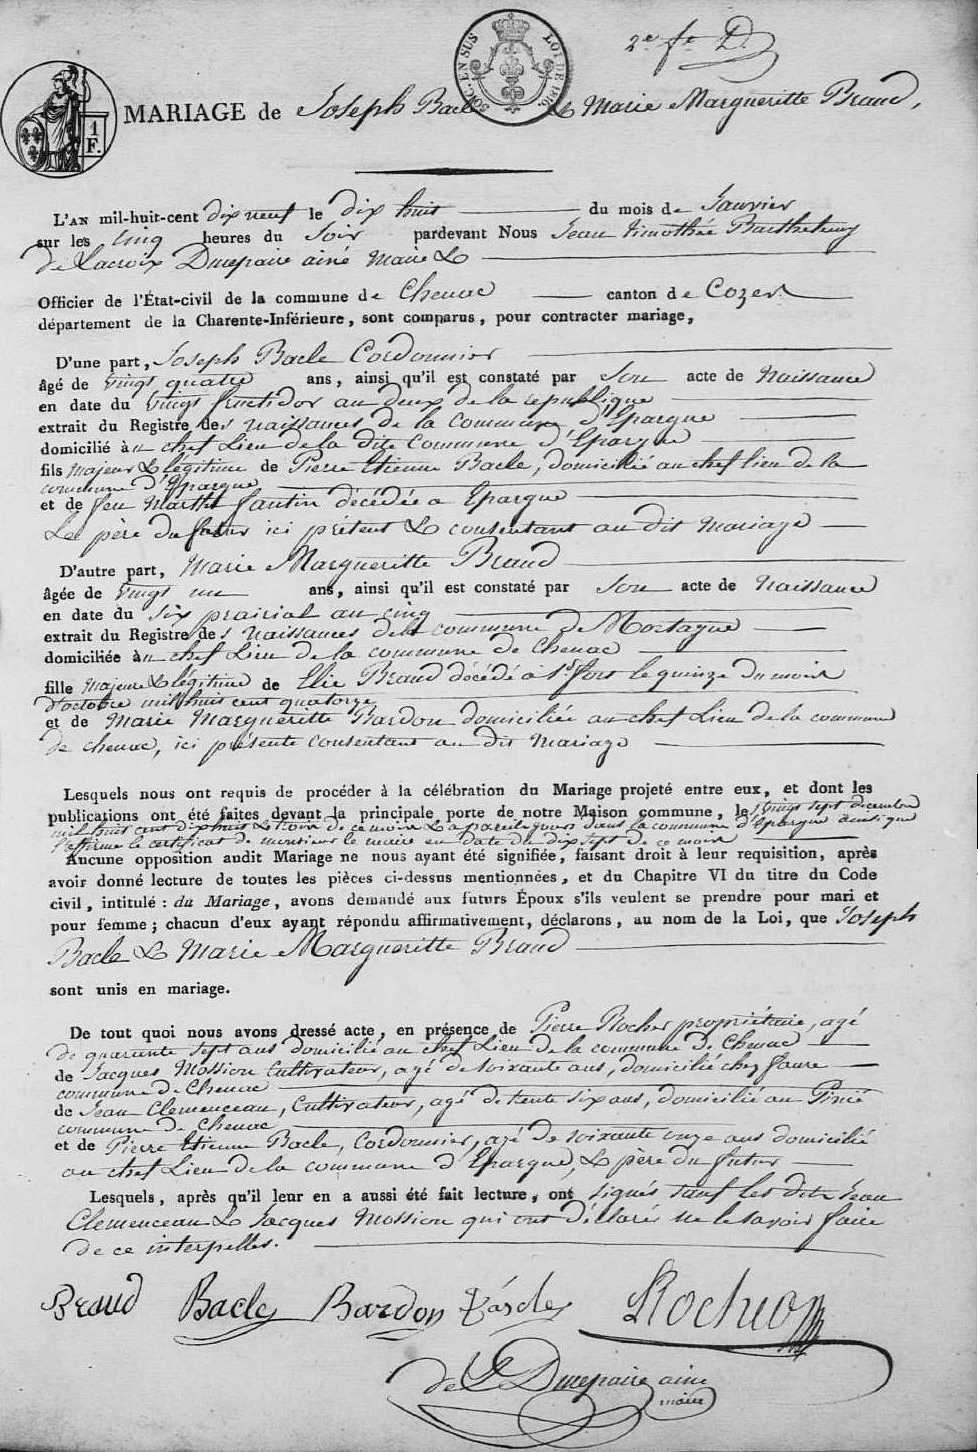 2e fe D.
SOIC. EN SUS LOI DE 1816
1 F.
MARIAGE de Joseph Bacle & Marie Margueritte Braud,
L'AN mil-huit-cent dix neuf le dix huit du mois de Janvier
sur les cinq heures du Soir pardevant Nous Jean timothée Barthelemy
de Lacroix Dumepaire ainé Maire &
Officier de l'État-civil de la commune de Chenac canton de Cozes
département de la Charente-Inférieure, sont comparus, pour contracter mariage,
D'une part, Joseph Bacle Cordonnier
âgé de vingt quatre ans, ainsi qu'il est constaté par Son acte de Naissance
en date du vingt fructidor an deux de la republique
extrait du Registre des naissances de la Commune d'Epargne
domicilié au chef Lieu de la dite Commune d'Epargne
fils majeur & légitime de Pierre Etienne Bacle, domicilié au chef lieu de la
commune d'Epargne
et de feu Marthe fautin décédée a Epargne
Le père du futur ici présent & consentant au dit Mariage
D'autre part, Marie Margueritte Braud
âgée de vingt un ans, ainsi qu'il est constaté par Son acte de Naissance
en date du Six prairial an cinq
extrait du Registre des Naissances de la commune de Mortagne
domiciliée au chef Lieu de la commune de Chenac
fille Majeure & légitime de Elie Braud décédé à St fort le quinze du mois
d'octobre mil huit cent quatorze
et de Marie Margueritte Bardon domiciliée au chef Lieu de la commune
de chenac, ici présente consentant au dit Mariage
Lesquels nous ont requis de procéder à la célébration du Mariage projeté entre eux, et dont les
publications ont été faites devant la principale porte de notre Maison commune, le vingt sept decembre
mil huit cent dix huit & trois de ce mois & a pareils jours dans la commune d'Epargne ainsi que
l'affirme le certificat de monsieur le maire en date du dix sept de ce mois
Aucune opposition audit Mariage ne nous ayant été signifiée, faisant droit à leur requisition, après
avoir donné lecture de toutes les pièces ci-dessus mentionnées, et du Chapitre VI du titre du Code
civil, intitulé : du Mariage, avons demandé aux futurs Époux s'ils veulent se prendre pour mari et
pour femme ; chacun d'eux ayant répondu affirmativement, déclarons, au nom de la Loi, que Joseph
Bacle & Marie Margueritte Braud
sont unis en mariage.
De tout quoi nous avons dressé acte, en présence de Pierre Rocher propriétaire, agé
de quarante sept ans domicilié au chef Lieu de la commune de Chenac
de Jacques Mossion Cultivateur, agé de soixante ans, domicilié chez faure
commune de Chenac
de Jean Clemenceau, Cultivateur, agé de trente six ans, domicilié au Pinié
commune de Chenac
et de Pierre Etienne Bacle, Cordonnier, agé de soixante onze ans domicilié
au chef Lieu de la commune d'Epargne, & père du futur
Lesquels, après qu'il leur en a aussi été fait lecture, ont signés sauf les dits Jean
Clemenceau & Jacques Mossion qui ont déclarés ne le savoir faire
de ce interpellés.
Braud Bacle Bardon Bacle Rocher
de L Dumepaire ainé
maire